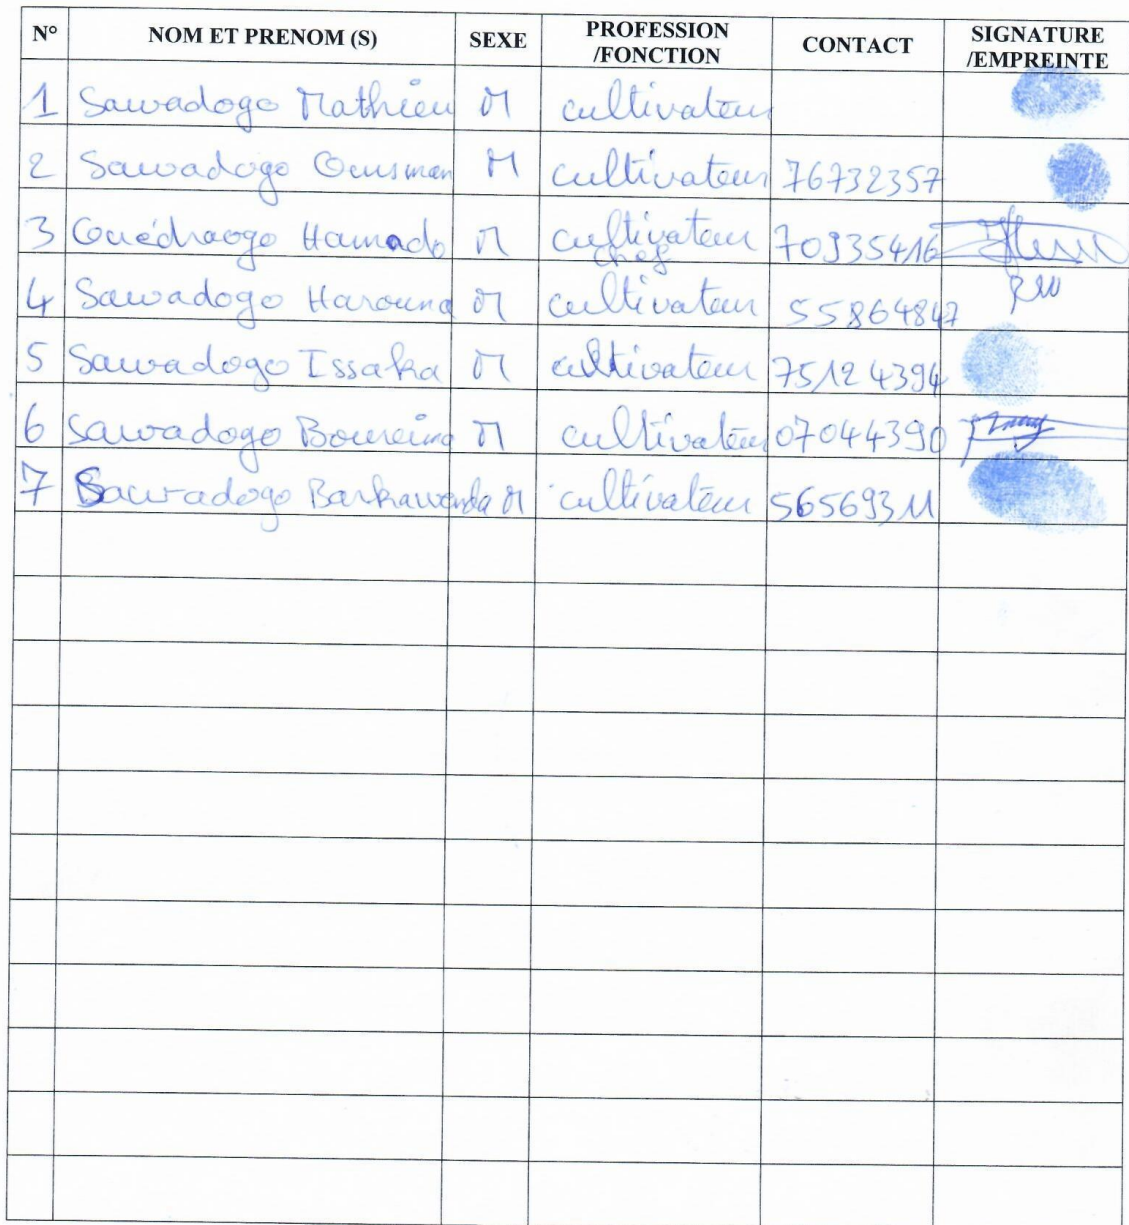 N° NOM ET PRENOM (S) SEXE PROFESSION /FONCTION CONTACT SIGNATURE /EMPREINTE
1 Sawadogo Mathieu M cultivateur
2 Sawadogo Ousman M cultivateur 76732357
3 Ouédraogo Hamado M cultivateur 70935416
chef
4 Sawadogo Harouna M cultivateur 55864847
5 Sawadogo Issaka M cultivateur 75124394
6 Sawadogo Boureima M cultivateur 07044390
7 Sawradogo Barkawenda M cultivateur 56569311